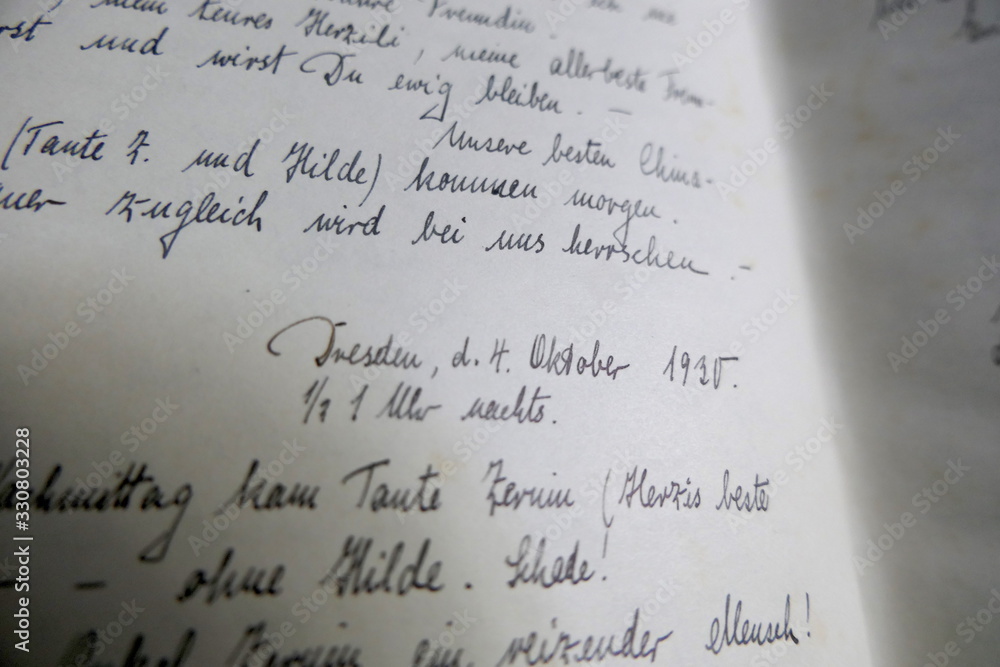 Freundin.
, mein teures Herzili, meine allerbeste Freun-
und wirst Du ewig bleiben. –
Unsere besten Chims-
(Tante Z. und Hilde) kommen morgen.
zugleich wird bei uns herrschen –
Dresden, d. 4. Oktober 1930.
1/2 1 Uhr nachts.
Nachmittag kam Tante Zernin (Herzis beste
– – ohne Hilde. Schade!
Onkel Zernin ein reizender Mensch!
Adobe Stock | #330803228